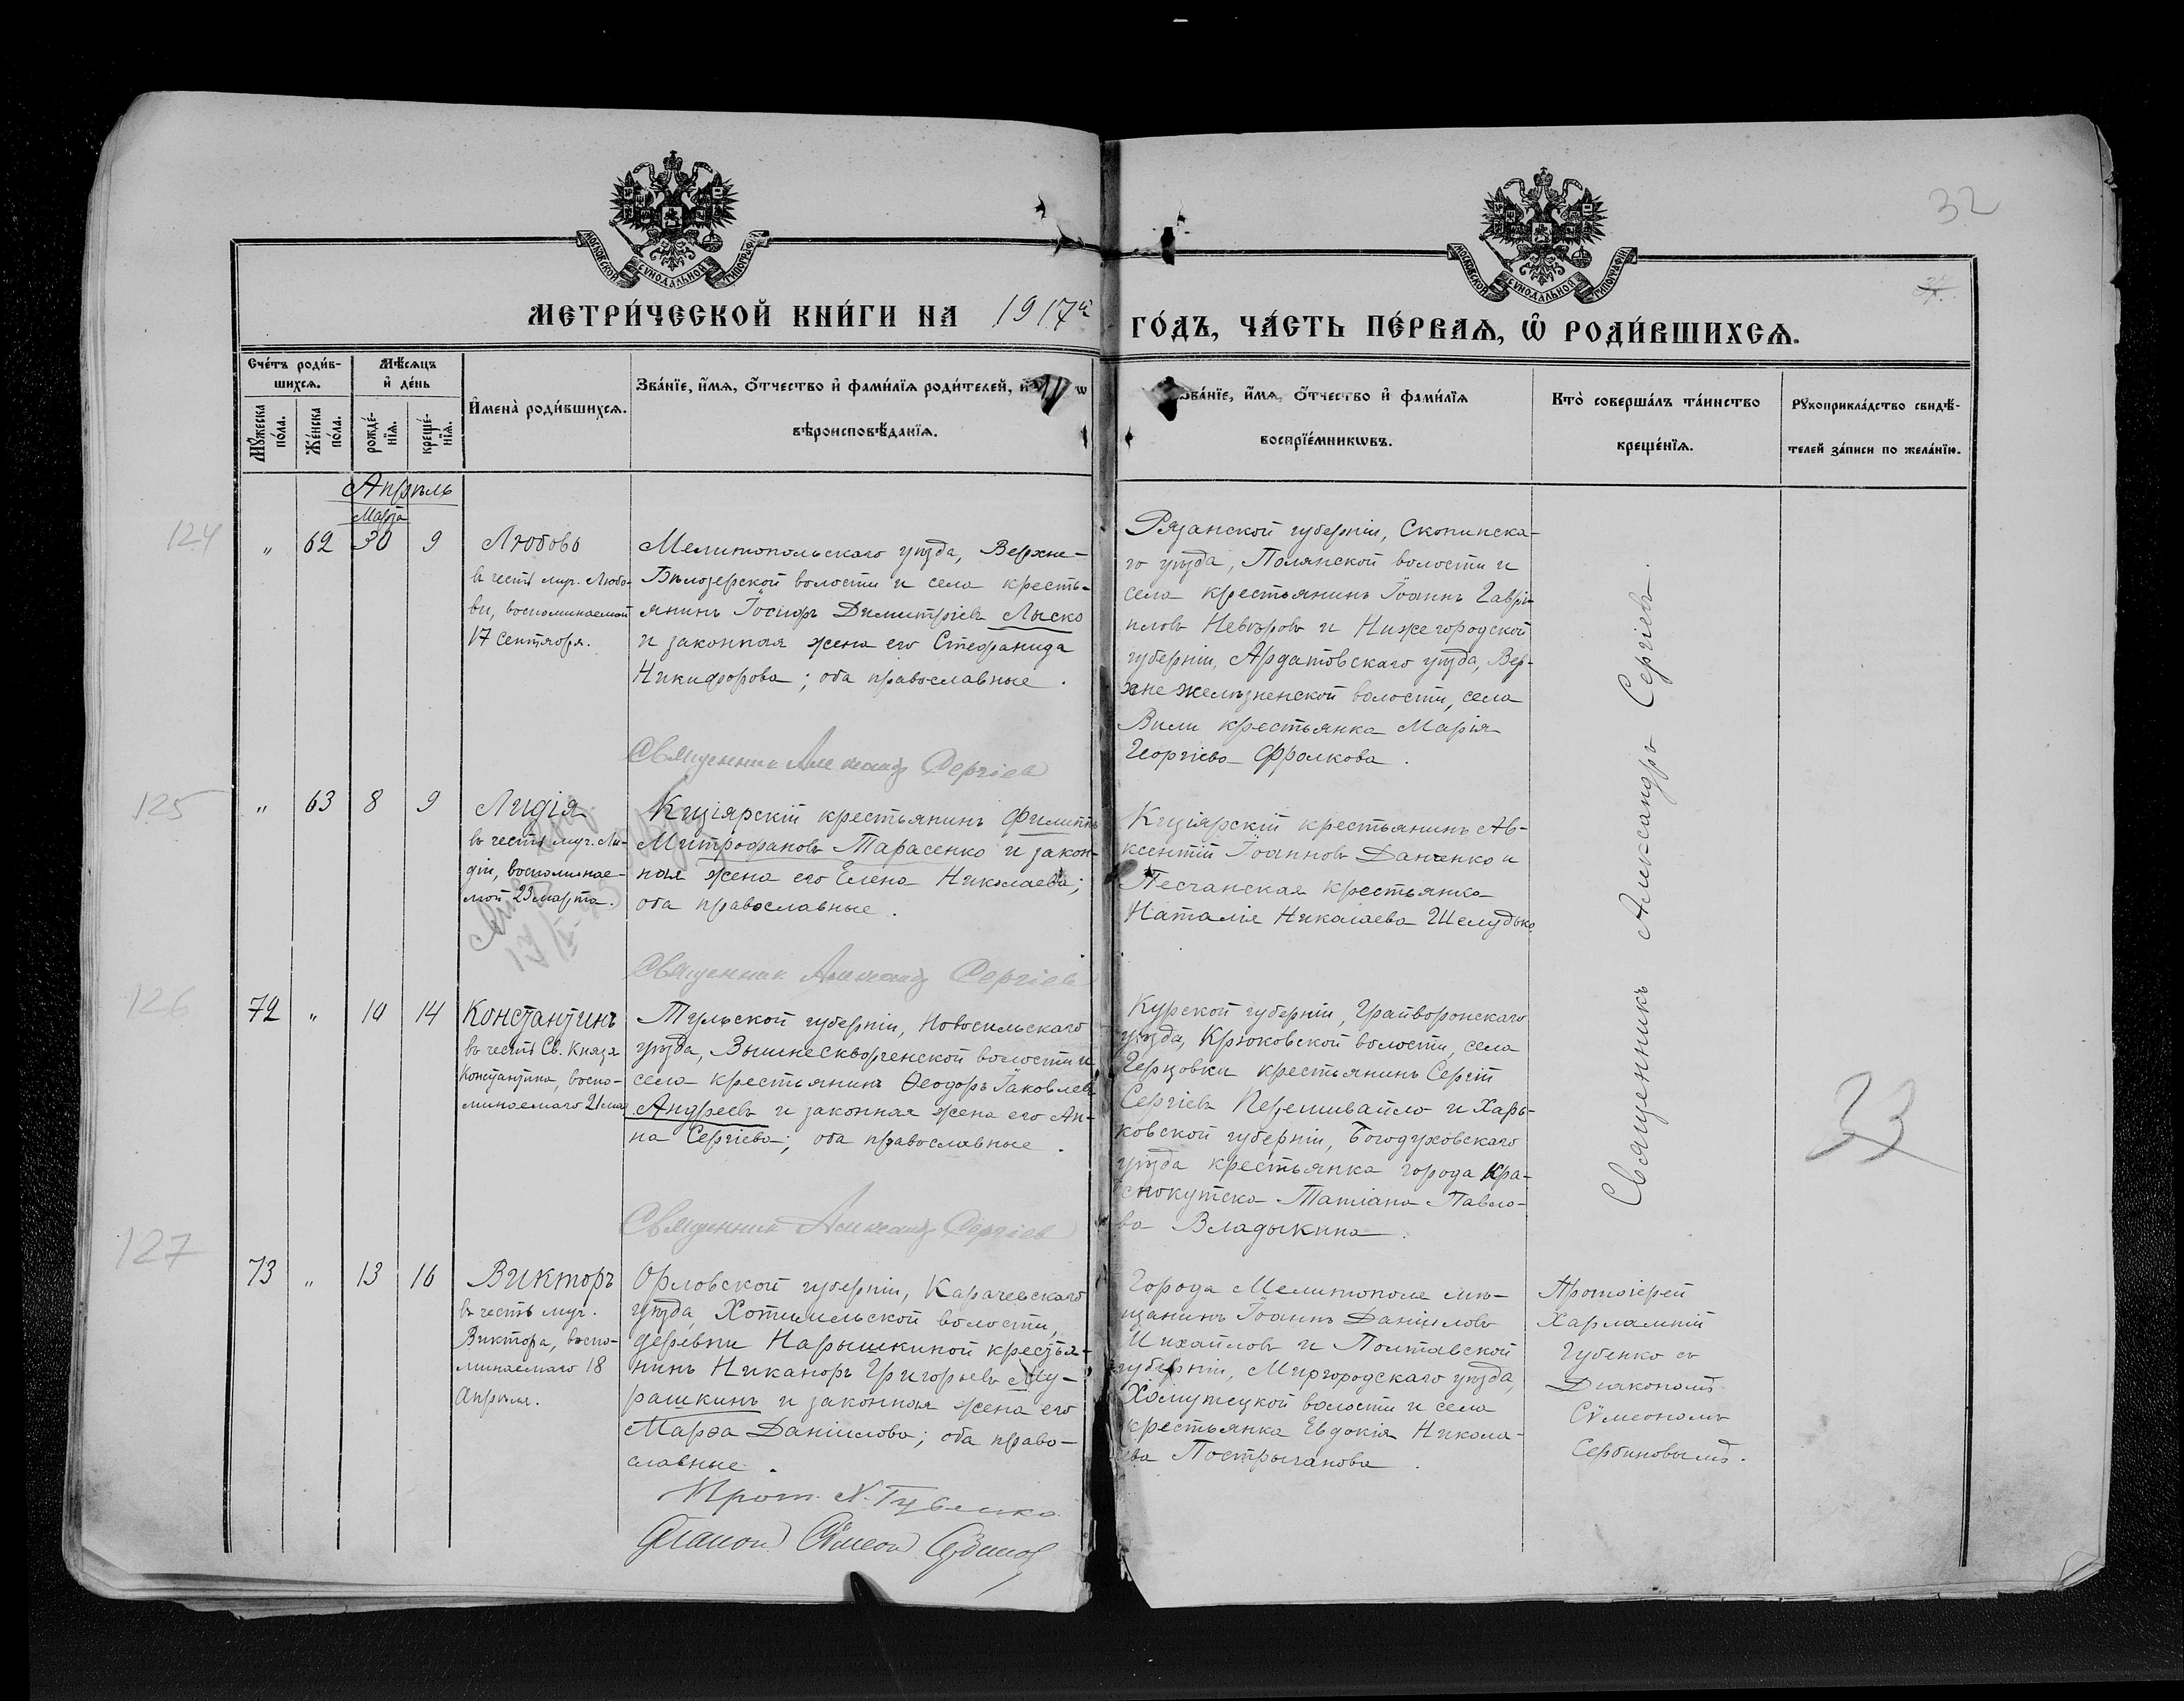 32
МОСКОВСКОЙ СѴНОДАЛЬНОЙ ТИПОГРАФІИ
МОСКОВСКОЙ СѴНОДАЛЬНОЙ ТИПОГРАФІИ
МЕТРИ́ЧЕСКОЙ КНИ́ГИ НА 1917й
ГО́ДЪ, ЧА́СТЬ ПЕ́РВАѦ, Ѿ РОДИ́ВШИХСѦ.
Сче́тъ роди́в-
шихсѧ.
Мꙋжеска по́ла.
Же́нска по́ла.
Мѣ́сѧцъ
и҆ де́нь
рожде́-
нїѧ.
креще́-
нїѧ.
И҆мена̀ роди́вшихсѧ.
Зва́нїе, и҆́мѧ, ѻ҆́тчество и҆ фами́лїѧ роди́телей, и҆
вѣроисповѣ́данїѧ.
Зва́нїе, и҆́мѧ, ѻ҆́тчество и҆ фами́лїѧ
воспрїе́мникѡвъ.
Кто̀ соверша́лъ та́инство
креще́нїѧ.
Рꙋкоприкла́дство свидѣ́-
телей за́писи по жела́нїю.
Апрѣль
Марта
124
" 62 30 9
Любовь
въ честь муч. Любо-
ви, воспоминаемой
17 Сентября.
Мелитопольскаго уѣзда, Верхне-
Бѣлозерской волости и села кресть-
янинъ Іосифъ Димитріевъ Лыско
и законная жена его Стефанида
Никифорова; оба православные.
Священник Александр Сергіев
Рязанской губерніи, Скопинска-
го уѣзда, Полянской волости и
села крестьянинъ Іоаннъ Гаврі-
иловъ Невзровъ и Нижегородской
губерніи, Ардатовскаго уѣзда, Вер-
хне желѣзненской волости, села
Вили крестьянка Марія
Георгіева Фролкова.
Священникъ Александръ Сергіевъ.
125
" 63 8 9
Лидія
въ честь муч. Ли-
діи, воспоминае-
мой 23 марта.
Кизіярскій крестьянинъ Филиппъ
Митрофановъ Тарасенко и закон-
ная жена его Елена Николаева;
оба православные.
Священник Александр Сергіев
Кизіярскій крестьянинъ Ав-
ксентій Іоанновъ Данченко и
Песчанская крестьянка
Наталія Николаева Шелудько.
126
72 " 10 14
Константинъ
въ честь Св. Князя
Константина, воспо-
минаемаго 21 мая
Тульской губерніи, Новосильскаго
уѣзда, Вышнескворченской волости и
села крестьянинъ Ѳеодоръ Іаковлевъ
Андреевъ и законная жена его Ан-
на Сергіева; оба православные.
Священник Александр Сергіев
Курской губерніи, Грайворонскаго
уѣзда, Крюковской волости, села
Герцовки крестьянинъ Сергій
Сергіевъ Перешивайло и Харь-
ковской губерніи, Богодуховскаго
уѣзда крестьянка города Кра-
снокутска Татіана Павло-
ва Владыкина.
33
127
73 " 13 16
Викторъ
въ честь муч.
Виктора, воспо-
минаемаго 18
Апрѣля.
Орловской губерніи, Карачевскаго
уѣзда, Хотимльской волости,
деревни Нарышкиной крестья-
нинъ Никаноръ Григорьевъ Му-
рашкинъ и законная жена его
Марѳа Даніилова; оба право-
славные.
Прот. Х. Губенко
Діакон Сѵмеон Сербинов
Города Мелитополя мѣ-
щанинъ Іоаннъ Даніиловъ
Михайловъ и Полтавской
губерніи, Миргородскаго уѣзда,
Хомутецкой волости и села
крестьянка Евдокія Никола-
ева Пострыганова.
Протоіерей
Харлампій
Губенко съ
Діакономъ
Сѵмеономъ
Сербиновымъ.